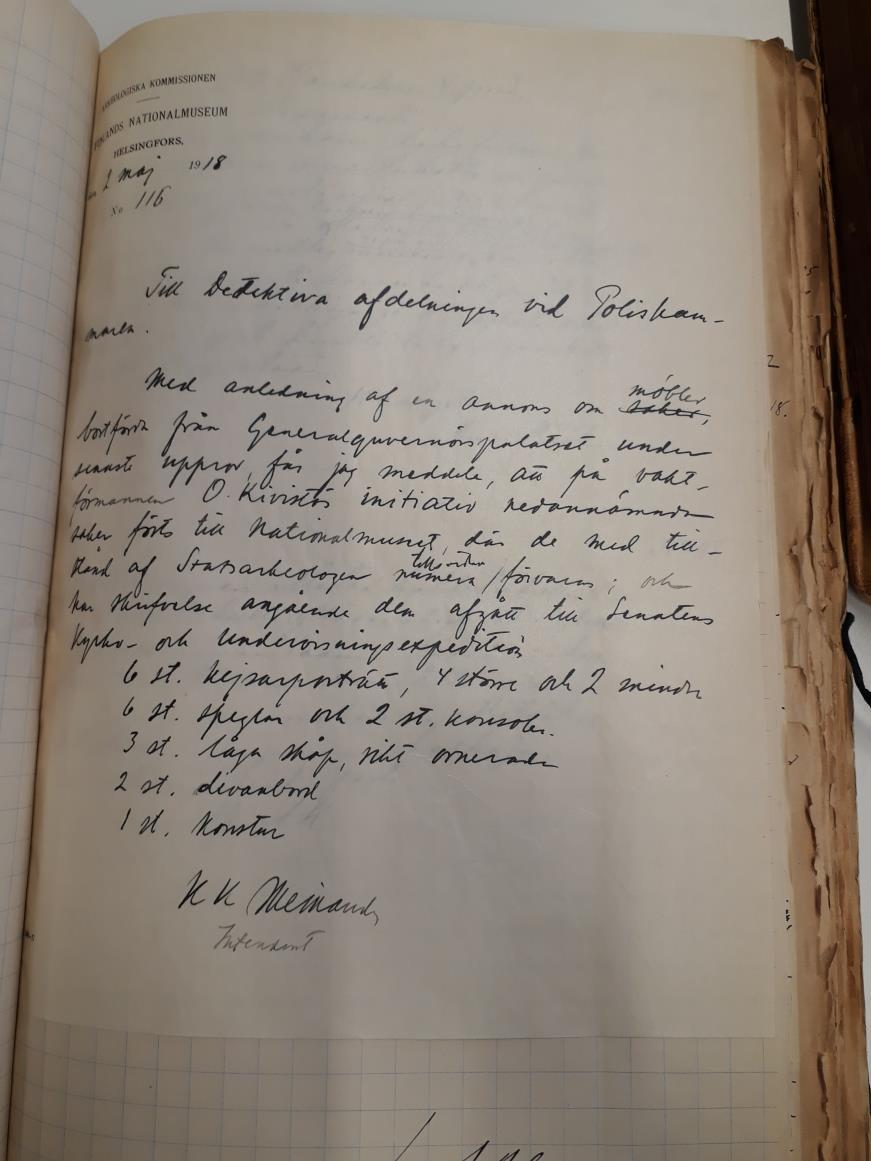 ARKEOLOGISKA KOMMISSIONEN
FINLANDS NATIONALMUSEUM
HELSINGFORS,
den 2 maj 1918
No 116
Till Detektiva afdelningen vid Poliskam-
maren.
Med anledning af en annons om saker, möbler,
bortförda från Generalguvernörspalatset under
senaste uppror, får jag meddela, att på vakt-
förmannen O. Kivistös initiativ nedannämnda
saker förts till Nationalmuseet, där de med till-
stånd af Statsarkeologen numera tillsvidare förvaras; och
har skrifvelse angående dem afgått till Senatens
Kyrko- och undervisningsexpedition
6 st. kejsarporträtt, 4 större och 2 mindre
6 st. speglar och 2 st. konsoler.
3 st. låga skåp, rikt ornerade
2 st. divanbord
1 st. konstur
K K Meinander
Intendent